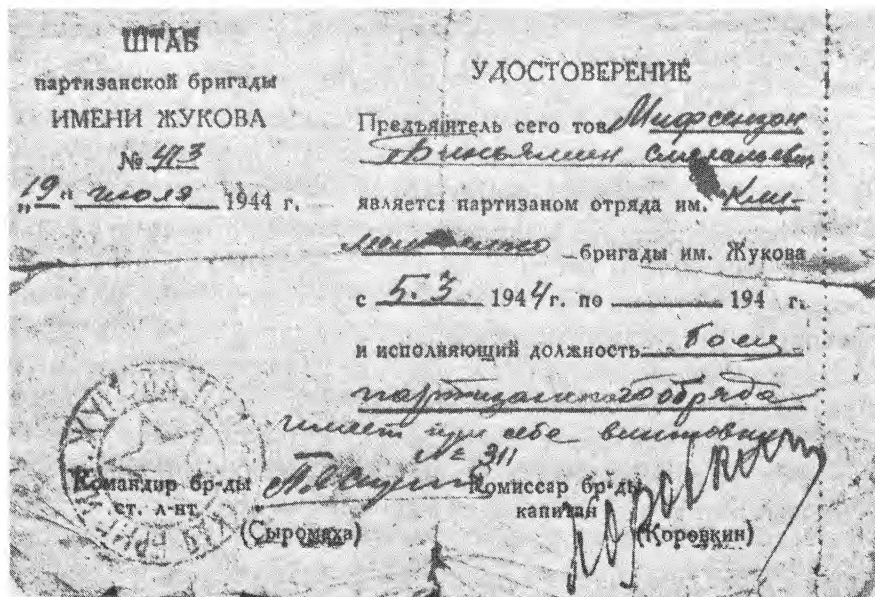 ШТАБ
партизанской бригады
ИМЕНИ ЖУКОВА
№ 473
„19“ июля 1944 г.
УДОСТОВЕРЕНИЕ
Предъявитель сего тов. Мифсензон
Биньямин
является партизаном отряда им. Кли-
бригады им. Жукова
с 5.3 1944 г. по 194 г.
и исполняющий должность боец
партизанского отряда
имеет при себе винтовку
№ 311
Командир бр-ды
ст. л-нт
(Сыромаха)
Комиссар бр-ды
капитан
(Коровкин)